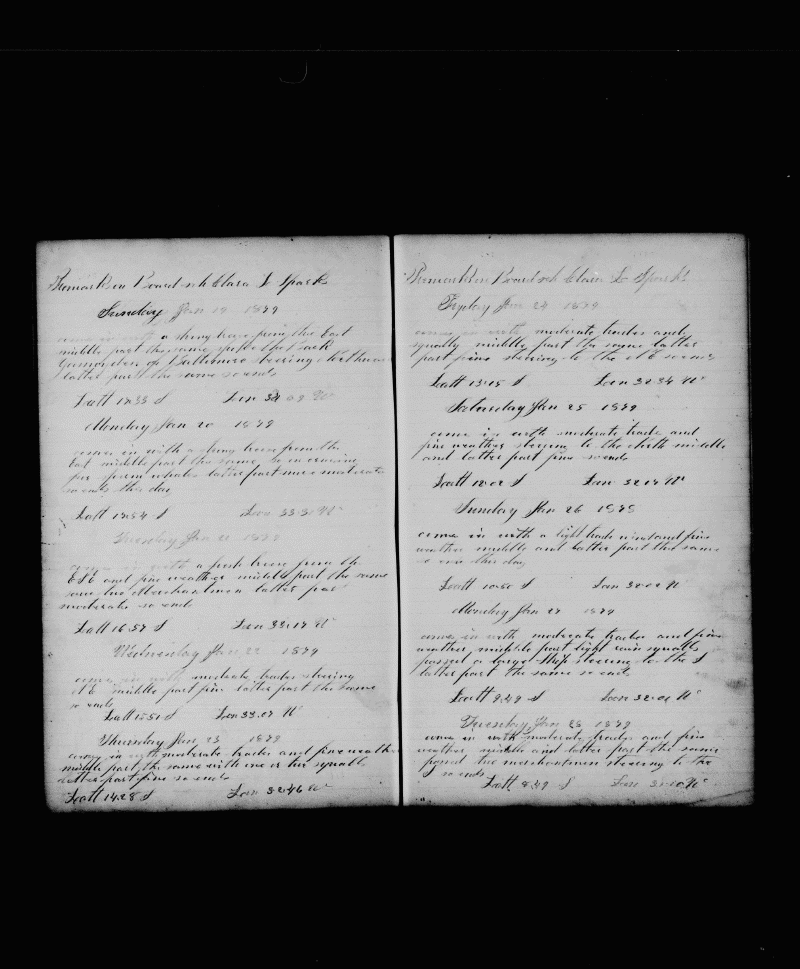 Remarks on Board sch Clara L Sparks
Sunday Jan 19 1879
comes in with a strong breeze from the East
middle part the same spoke the Bark
of Baltimore steering Northward
latter part the same so ends
Latt 17.33 S Lon 32
Monday Jan 20 1879
comes in with a strong breeze from the
East middle part the same
latter part more moderate
so ends this day
Latt 17.54 S Lon 33.31 W
Tuesday Jan 21 1879
comes in with a fresh breeze from the
ESE and fine weather middle part the same
saw two Merchantmen latter part
moderate so ends
Latt 16.57 S Lon 33.17 W
Wednesday Jan 22 1879
comes in with moderate trades steering
NE middle part fine latter part the same
so ends
Latt 15.51 S Lon 33.07 W
Thursday Jan 23 1879
comes in with moderate trades and fine weather
middle part the same with one or two squalls
latter part fine so ends
Latt 14.28 S Lon 32.46 W
Remarks on Board sch Clara L Sparks
Fryday Jan 24 1879
comes in with moderate trades and
squally middle part the same latter
part fine steering to the NE so ends
Latt 13.15 S Lon 32.34 W
Saturday Jan 25 1879
comes in with moderate trades and
fine weather steering to the North middle
and latter part fine so ends
Latt 12.02 S Lon 32.17 W
Sunday Jan 26 1879
comes in with a light trade wind and fine
weather middle and latter part the same
so ends this day
Latt 10.50 S Lon 32.02 W
Monday Jan 27 1879
comes in with moderate trades and fine
weather, middle part light rain squalls
passed a large Ship steering to the S
latter part the same so ends
Latt 9.49 S Lon 32.04 W
Tuesday Jan 28 1879
comes in with moderate trades and fine
weather middle and latter part the same
passed two merchantmen steering to the
so ends
Latt 8.49 S Lon W